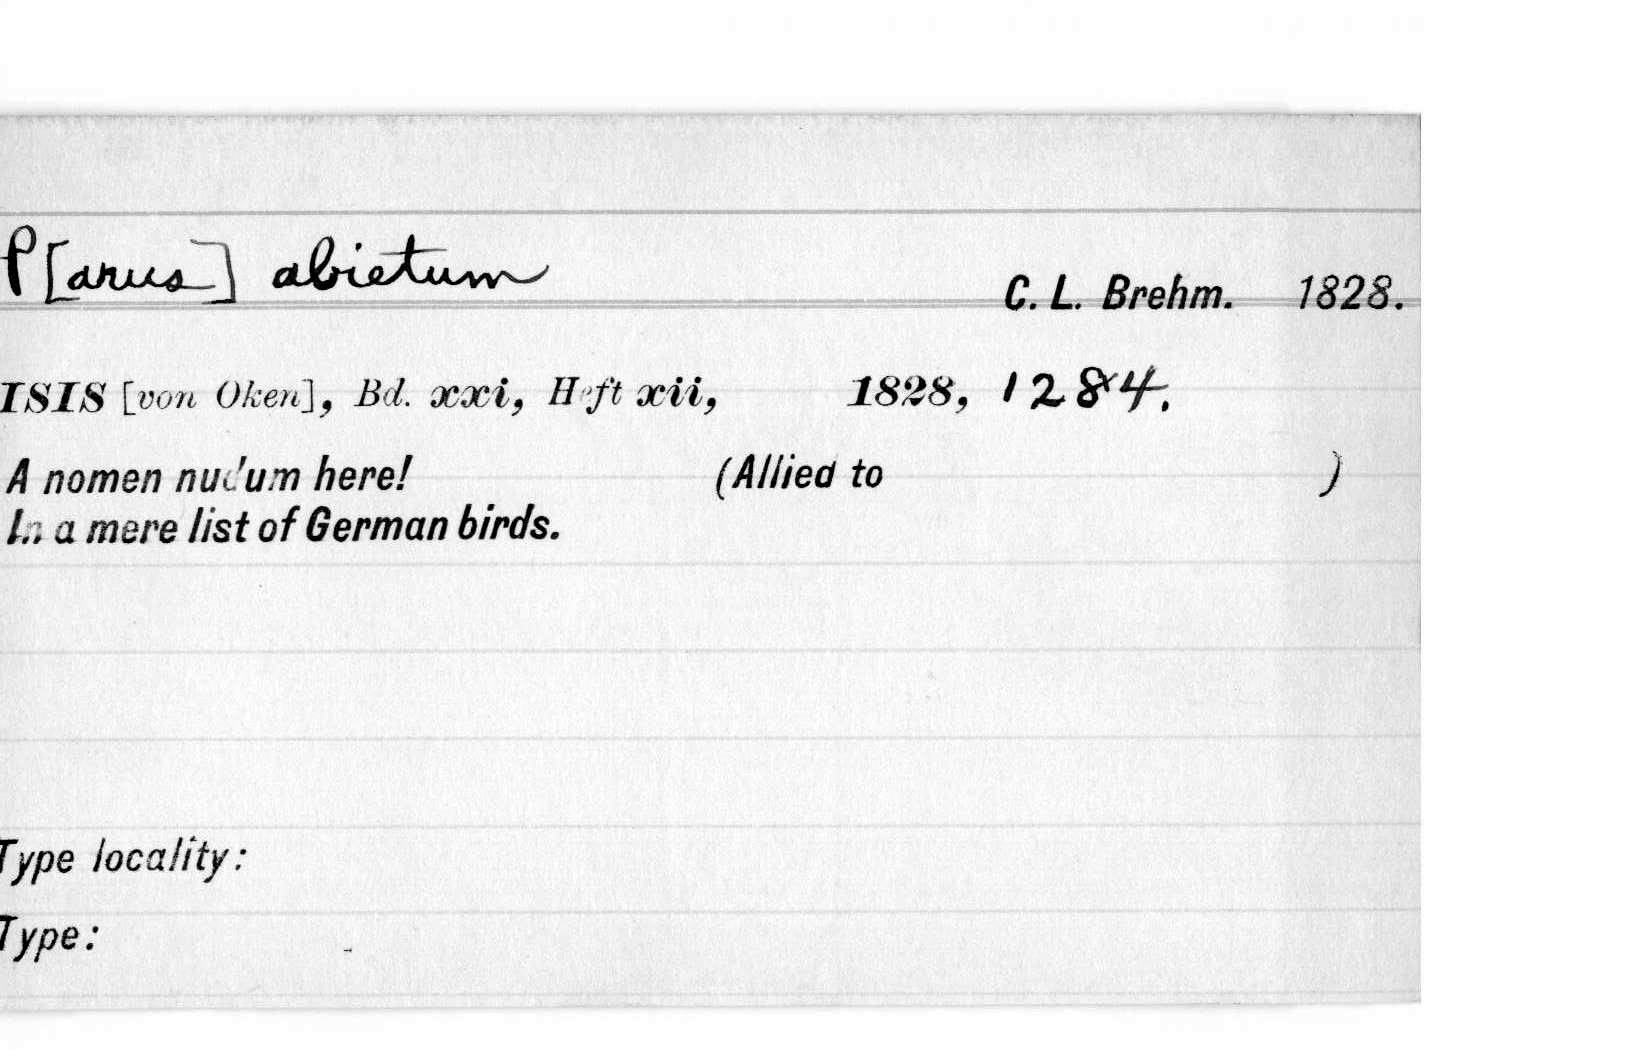 P[arus] abietum
C. L. Brehm. 1828.
ISIS [von Oken], Bd. xxi, Heft xii, 1828, 1284.
A nomen nudum here! (Allied to )
In a mere list of German birds.
Type locality:
Type: